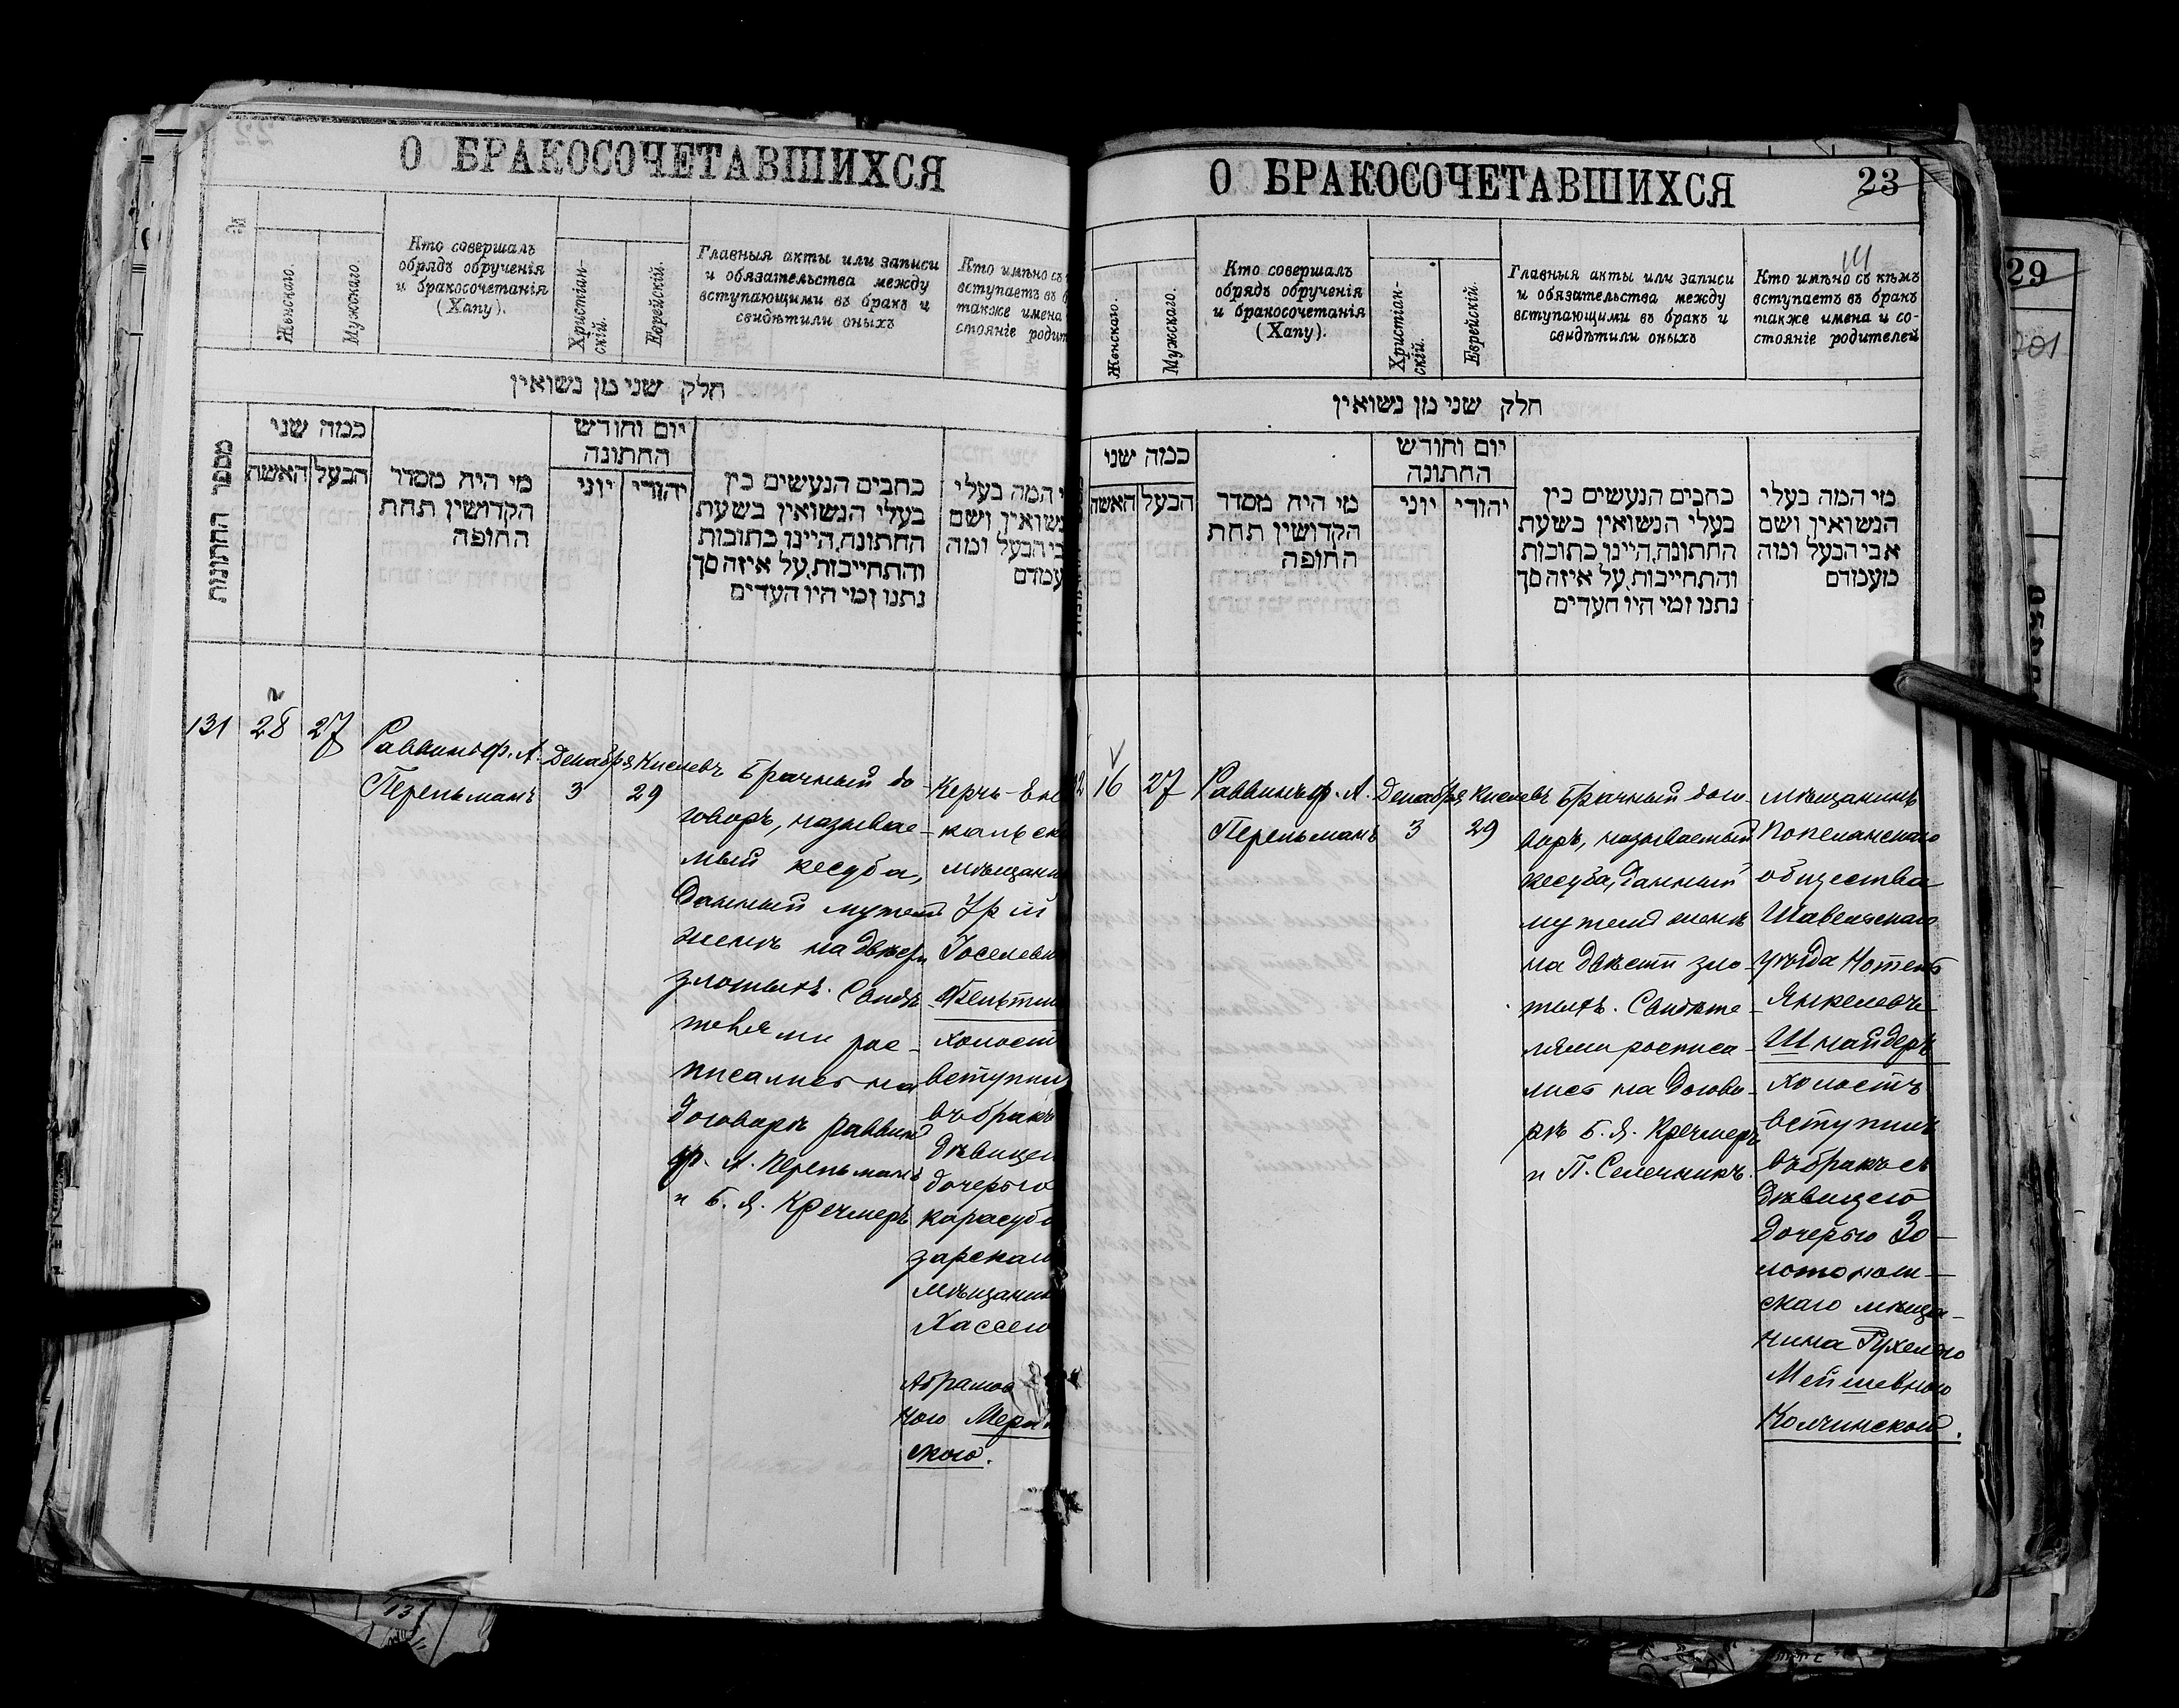 О БРАКОСОЧЕТАВШИХСЯ
№
Женскаго.
Мужскаго.
Кто совершалъ
обрядъ обрученія
и бракосочетанія
(Хапу).
Христіан-
скій.
Еврейскій.
Главныя акты или записи
и обязательства между
вступающими въ бракъ и
свидѣтили оныхъ
Кто имѣно съ
вступаетъ въ
также имена
стояніе родит
חלק שני מן נשואין
מספר החתונות
כמה שני
האשה
הבעל
מי היה מסדר
הקדושין תחת
החופה
יום וחודש
החתונה
יוני
יהודי
כתבים הנעשים בין
בעלי הנשואין בשעת
החתונה, היינו כתובות
והתחייבות, על איזה סך
נתנו ומי היו העדים
המה בעלי
נשואין ושם
אבי הבעל ומה
עמדם
131
28
27
Раввинъ ф. А.
Перельманъ
Декабря
3
Кислевъ
29
Брачный до-
говоръ, называе-
мый кесуба,
данный мужемъ
женѣ на двѣсти
злотыхъ. Свидѣ-
телями рос-
писались на
договорѣ раввинъ
ф. А. Перельманъ
и Б. Я. Кречмеръ
Керчь-Ени
кальск
мѣщанин
Урій
Іоселеви
холост
вступил
въ бракъ
дѣвицей
дочерью
карасуба
зарскаго
мѣщанин
Хассею
Абрамов
ною
скою.
О БРАКОСОЧЕТАВШИХСЯ
23
14
Женскаго.
Мужскаго.
Кто совершалъ
обрядъ обрученія
и бракосочетанія
(Хапу).
Христіан-
скій.
Еврейскій.
Главныя акты или записи
и обязательства между
вступающими въ бракъ и
свидѣтили оныхъ
Кто имѣно съ кѣмъ
вступаетъ въ бракъ
также имена и со-
стояніе родителей
חלק שני מן נשואין
כמה שני
האשה
הבעל
מי היה מסדר
הקדושין תחת
החופה
יום וחודש
החתונה
יוני
יהודי
כתבים הנעשים בין
בעלי הנשואין בשעת
החתונה, היינו כתובות
והתחייבות, על איזה סך
נתנו ומי היו העדים
מי המה בעלי
הנשואין ושם
אבי הבעל ומה
מעמדם
2
16
27
Раввинъ ф. А.
Перельманъ
Декабря
3
Кислевъ
29
Брачный дого-
воръ, называемый
кесуба, данный
мужемъ женѣ
на двѣсти зло-
тыхъ. Свидѣте-
лями росписа-
лись на догово-
рѣ Б. Я. Кречмеръ
и П. Селечникъ.
мѣщанинъ
Попелянскаго
общества
Шавельскаго
уѣзда Нотель
Янкелевъ
Шнайдеръ
холостъ
вступилъ
въ бракъ съ
дѣвицею
дочерью Зо-
лотонош-
скаго мѣща-
нина Рухелью
Мейшевною
Колчинской.
29
201